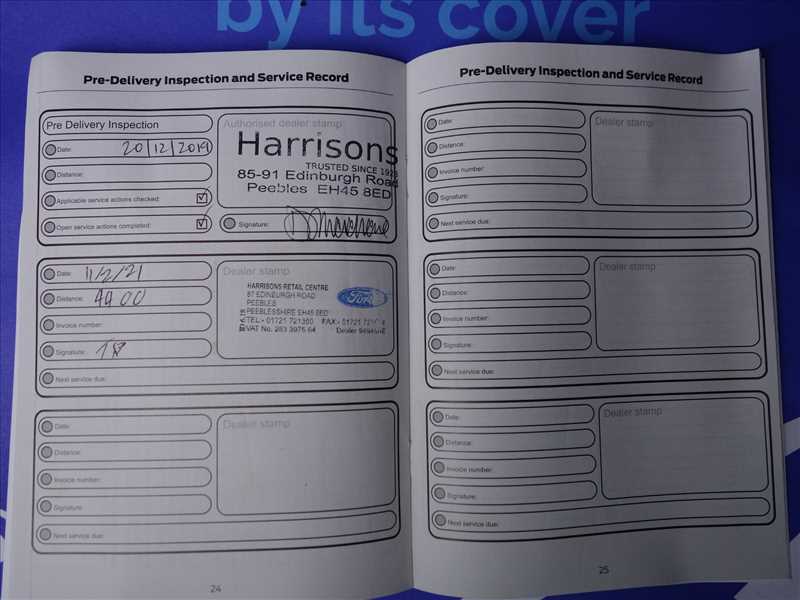 by its cover
Pre-Delivery Inspection and Service Record
Pre Delivery Inspection
Date: 20/12/2019
Distance:
Applicable service actions checked:
Open service actions completed:
Authorised dealer stamp
Harrisons
TRUSTED SINCE
85-91 Edinburgh Road
Peebles EH45 8ED
Signature:
Date: 11/2/21
Distance: 4900
Invoice number:
Signature:
Next service due:
Dealer stamp
HARRISONS RETAIL CENTRE
87 EDINBURGH ROAD
PEEBLES
PEEBLESSHIRE EH45 8ED
TEL:- 01721 721350 FAX:- 01721
VAT No. 283 3975 64 Dealer
Ford
Date:
Distance:
Invoice number:
Signature:
Next service due:
Dealer stamp
24
Pre-Delivery Inspection and Service Record
Date:
Distance:
Invoice number:
Signature:
Next service due:
Dealer stamp
Date:
Distance:
Invoice number:
Signature:
Next service due:
Dealer stamp
Date:
Distance:
Invoice number:
Signature:
Next service due:
Dealer stamp
25